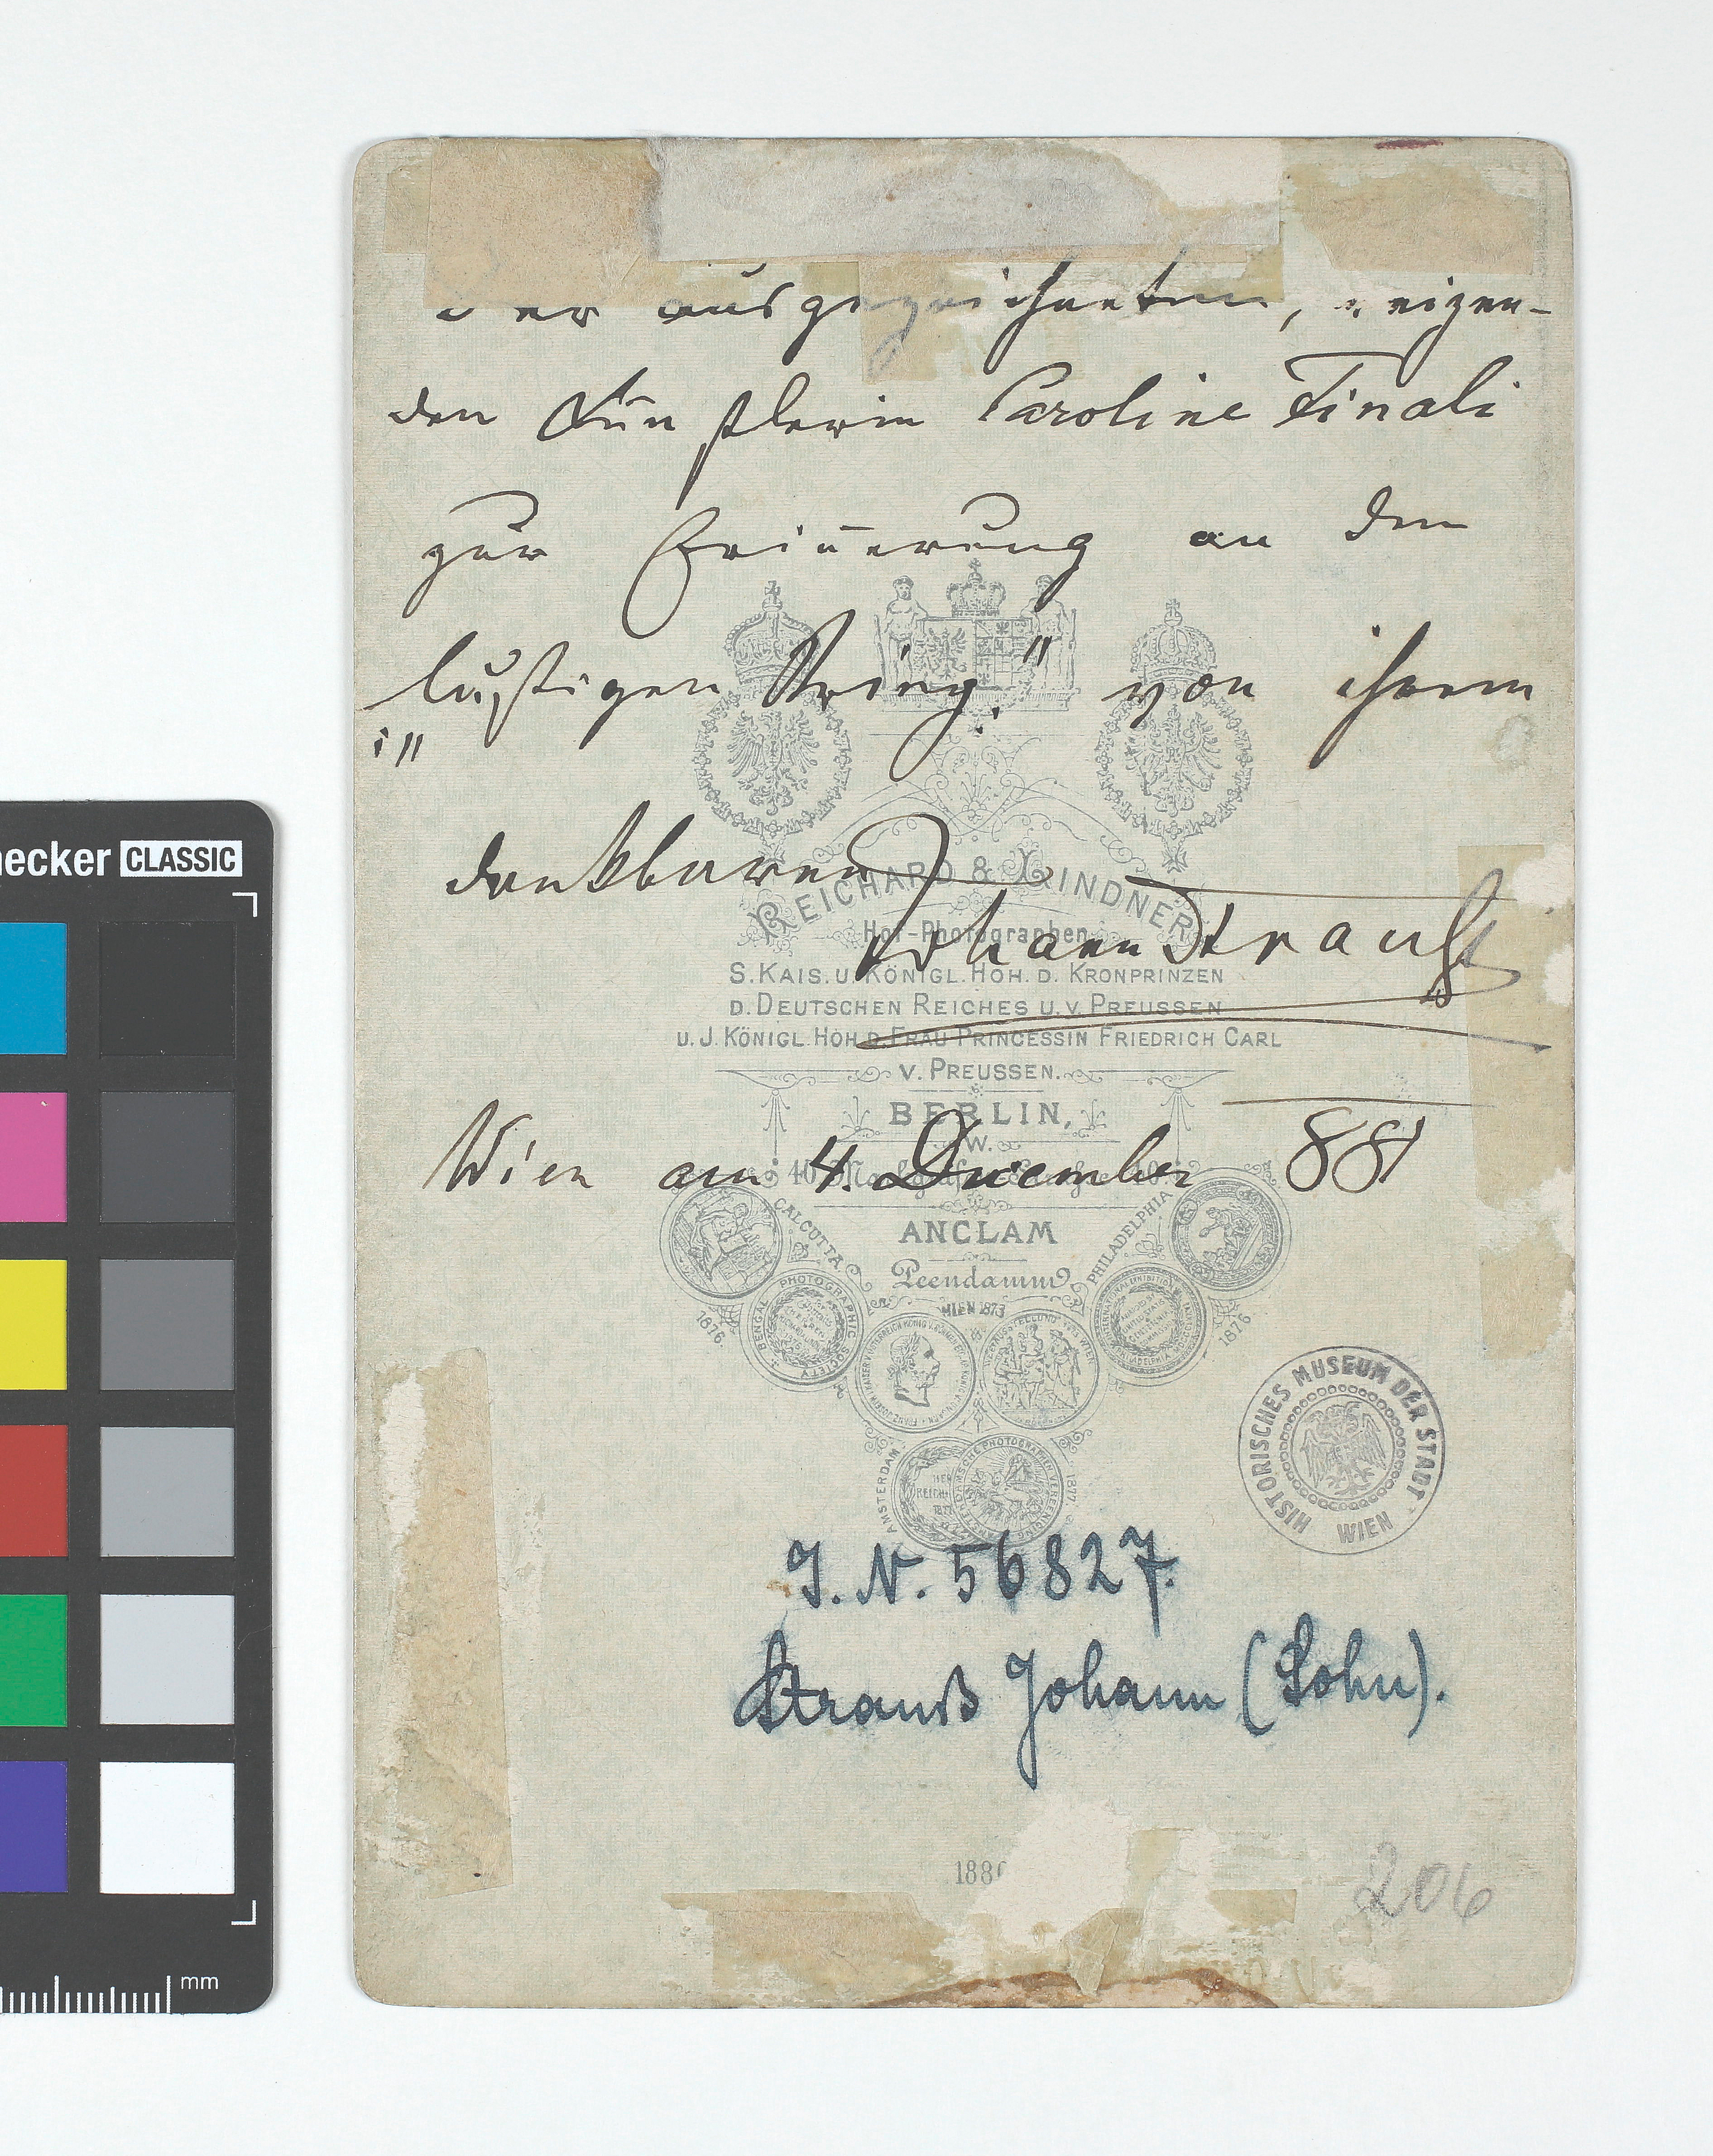 der ausgezeichneten, reizen-
den Künstlerin Caroline Finali
zur Erinnerung an den
„lustigen Krieg" von ihrem
dankbaren
Johann Strauß
Wien am 4. December 881
REICHARD & LINDNER
Hof-Photographen
S. KAIS. U. KÖNIGL. HOH. D. KRONPRINZEN
D. DEUTSCHEN REICHES U. V. PREUSSEN
U. J. KÖNIGL. HOH. D. FRAU PRINCESSIN FRIEDRICH CARL
V. PREUSSEN.
BERLIN,
W.
ANCLAM
Peendamm 9
CALCUTTA
1876.
PHOTOGRAPHIC SOCIETY BENGAL
WIEN 1873
PHILADELPHIA
1876
AMSTERDAM
1877.
HISTORISCHES MUSEUM DER STADT WIEN
J. N. 56827.
Strauß Johann (Sohn).
188
206
necker CLASSIC
mm